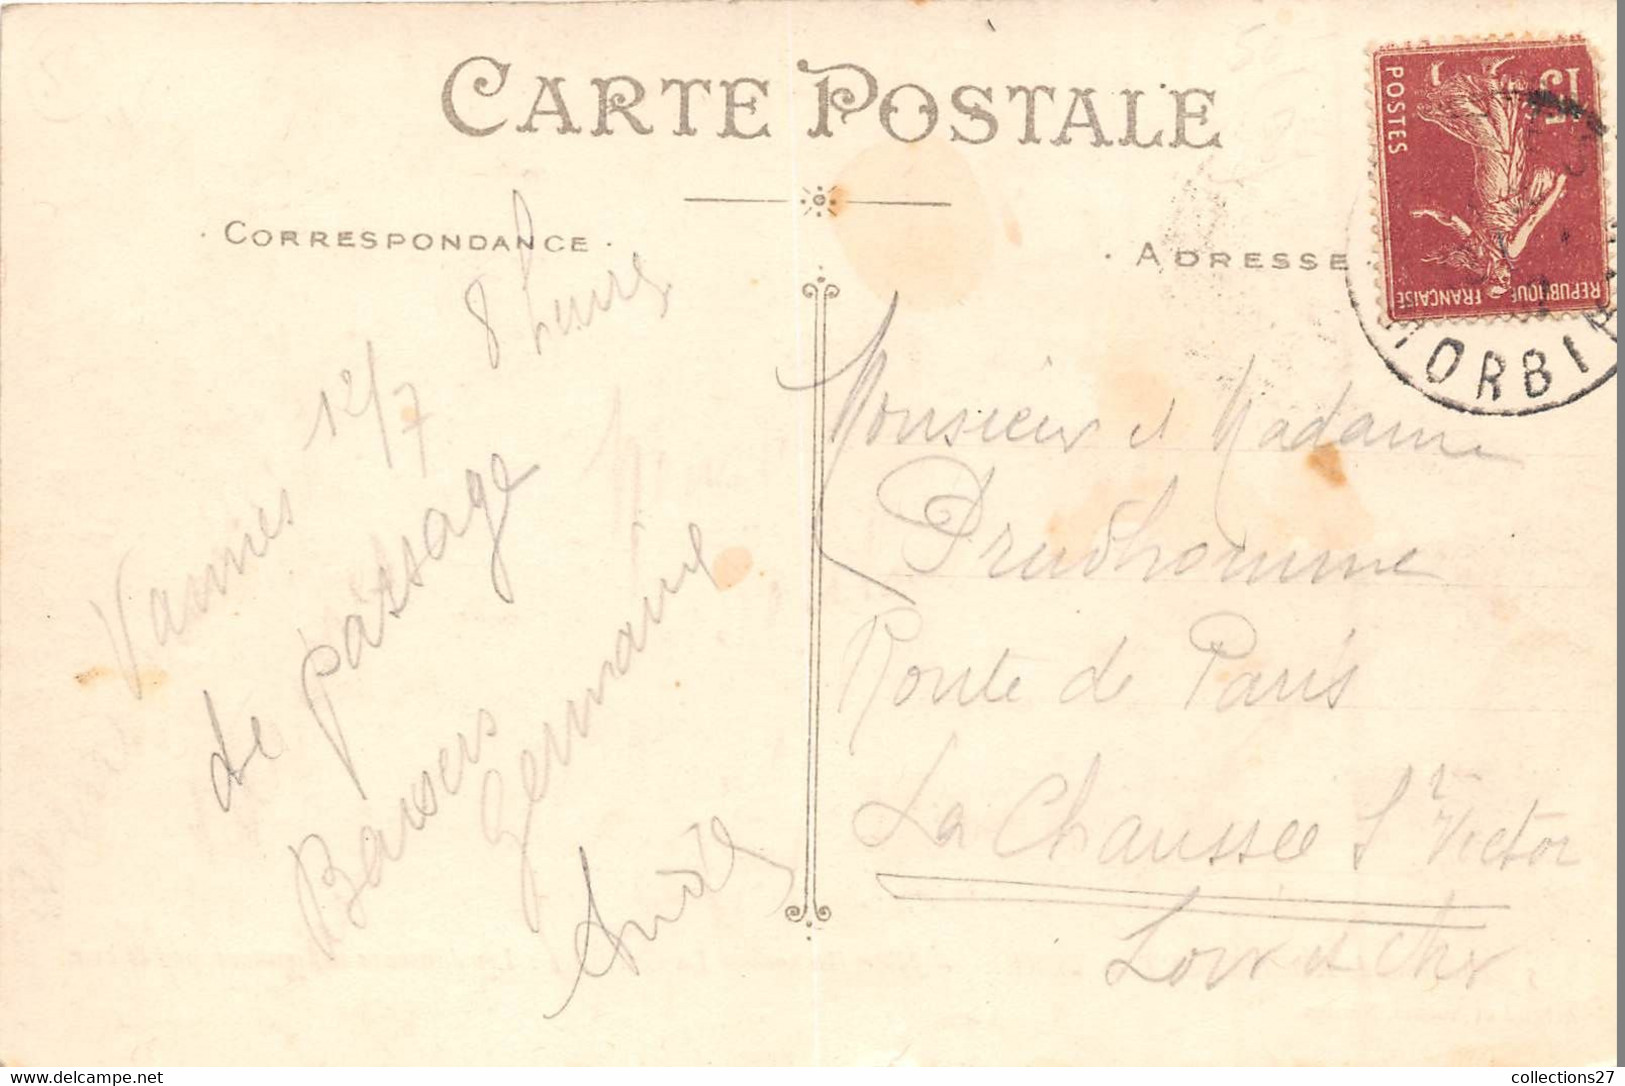 CARTE POSTALE
· CORRESPONDANCE ·
· ADRESSE ·
15
POSTES
REPUBLIQUE FRANÇAISE
MORBIHAN
Vannes 12/7 8 heures
de passage
Baisers
Germaine
André
Monsieur et Madame
Prudhomme
Route de Paris
La Chaussee St Victor
Loir et Cher
collections27